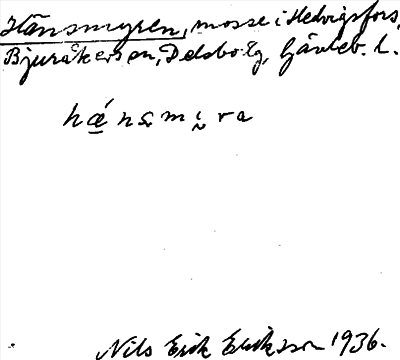 Hansmyren, mosse i Hedvigsfors,
Bjuråker sn, Delsbo tg, Gävleb. l.
hænsmira
Nils Erik Eriksson 1936.